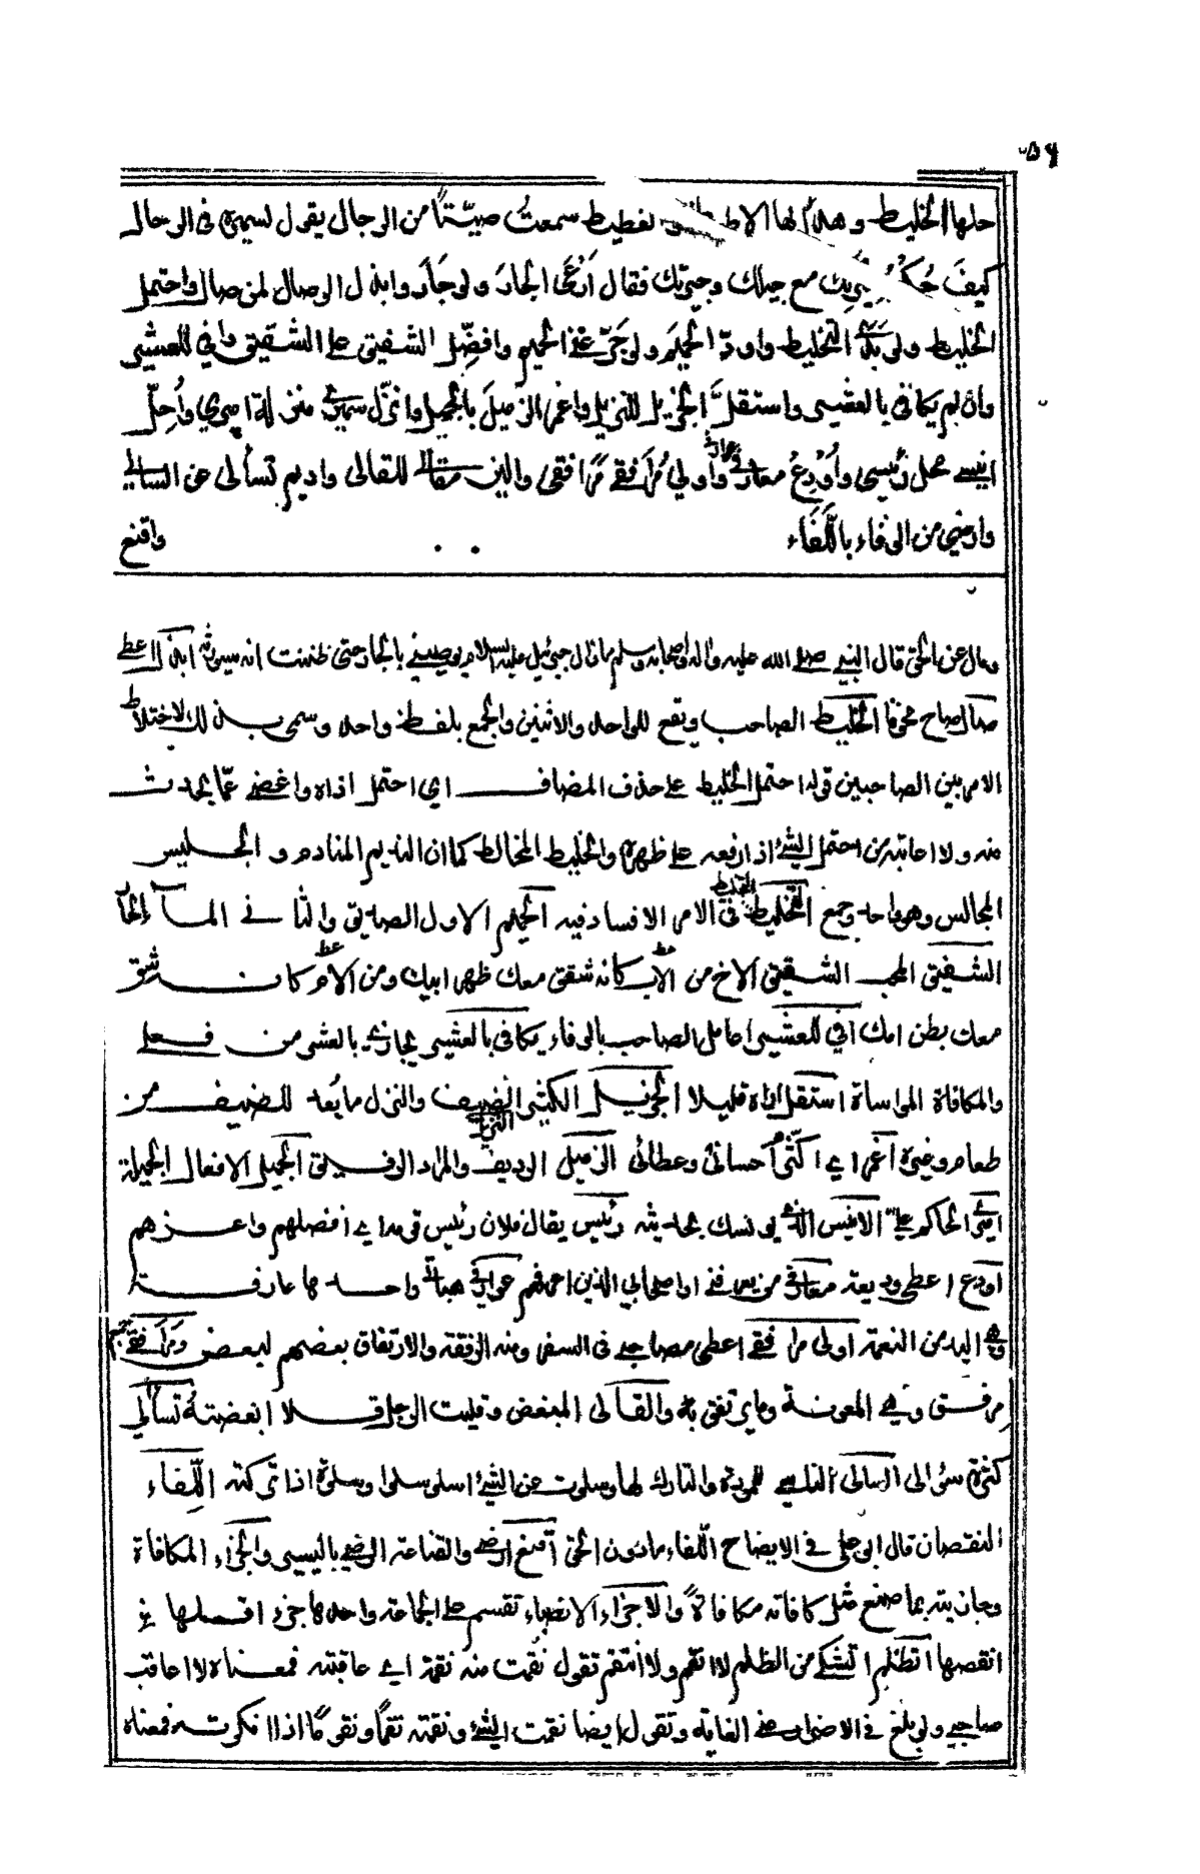 ٥٦
حلها الخليط وهدأ لها الاطيط والغطيط سمعت صيّتًا من الرجال يقول لسميره في الرحال
كيف حكم سيرتك مع جيلك وجيرتك فقال أرعى الجارَ ولو جَارَ وابذل الوصال لمن صال واحتمل
الخليط ولو ابدى التخليط واودّ الحميم ولو جَرّعني الحميم وافضّل الشفيق على الشقيق وافي للعشير
وان لم يكافئ بالعشير واستقلّ الجزيل للنزيل واغمر الزميل بالجميل وانزّل سميري منزلة اميري وأُحِلّ
انيسي محل رئيسي وأُودِعُ معارفي عوارفي وأولي مُرافقي مَرافقي والين مقالي للقالي واديم تسآلي عن السالي
وارضى من الوفاء باللَّفَاء
واقنع
ومال عن الحق قال النبي صلى الله عليه واله واصحابه وسلم ما زال جبرئيل عليه السلام يوصيني بالجار حتى ظننت انه سيورثه ابذل اعطي
صال صاح مخوفا الخليط الصاحب ويقع للواحد والاثنين والجمع بلفظ واحد وسمي بذلك لاختلاط
الامر بين الصاحبين قوله احتمل الخليط على حذف المضاف اي احتمل اذاه واغضي عمّا يحدث
منه ولا اعاتبه من احتمل الشئ اذا رفعه على ظهره والخليط المخالط كما ان النديم المنادم والجليس
المجالس وهو واحد وجمع التخليط في الامر الافساد فيه الحميم الاول الصديق والثاني الماء الحار
الشفيق المحب الشقيق الاخ من الاب كانه شق معك ظهر ابيك ومن الام كانه شق
معك بطن امك افي للعشير اعامل الصاحب بالوفاء يكافئ بالعشير يجازي بالعشر من فعلي
والمكافاة المواساة استقل اراه قليلا الجزيل الكثير النزيل الضيف والنزل ما يُعد للضيف من
طعام وغيره اغمر اي اكثر احسانی وعطائی الزميل الرديف والمراد الرفيق الجميل الافعال الجميلة
اميري الحاكم علي الانيس الذي يونسك بحديثه رئيس يقال فلان رئيس قومه اي افضلهم واعزهم
اودع اعطي وديعة معارفي من يعرفني او اصحابي الذين اعرفهم عوارفي هباتي واحدها عارفة
وهي اليد من النعمة اولي مرافقي اعطي مصاحبي في السفر ومنه الرفقة والارتفاق بعضهم لبعض ومَرافقي جمع
مرفق وهي المعونة وما يرتفق به والقالى المبغض وقليت الرجل قلا ابغضته تسآلي
كثرة سؤالي السالي الناسي للمودة والتارك لها وسلوت عن الشئ اسلو سلوا وسلوة اذا تركته اللّفاء
النقصان قال ابو علي في الايضاح اللّفاء مادون الحق اقنع ارضى والقناعة الرضى باليسير والجزاء المكافاة
وجازيته بما صنع مثل كافاته مكافاةً والاجزاء الانصباء تقسم على الجماعة واحدها جزء اقلها
انقصها اتظلم اتشكي من الظلم لا انقم ولا انتقم تقول نقمت منه نقمة اي عاقبته فمعناه لا اعاقب
صاحبي ولو بلغ في الاضرار بي الغاية وتقول ايضا نقمت الشئ ونقمته نقمًا ونقومًا اذا انكرته فمعناه